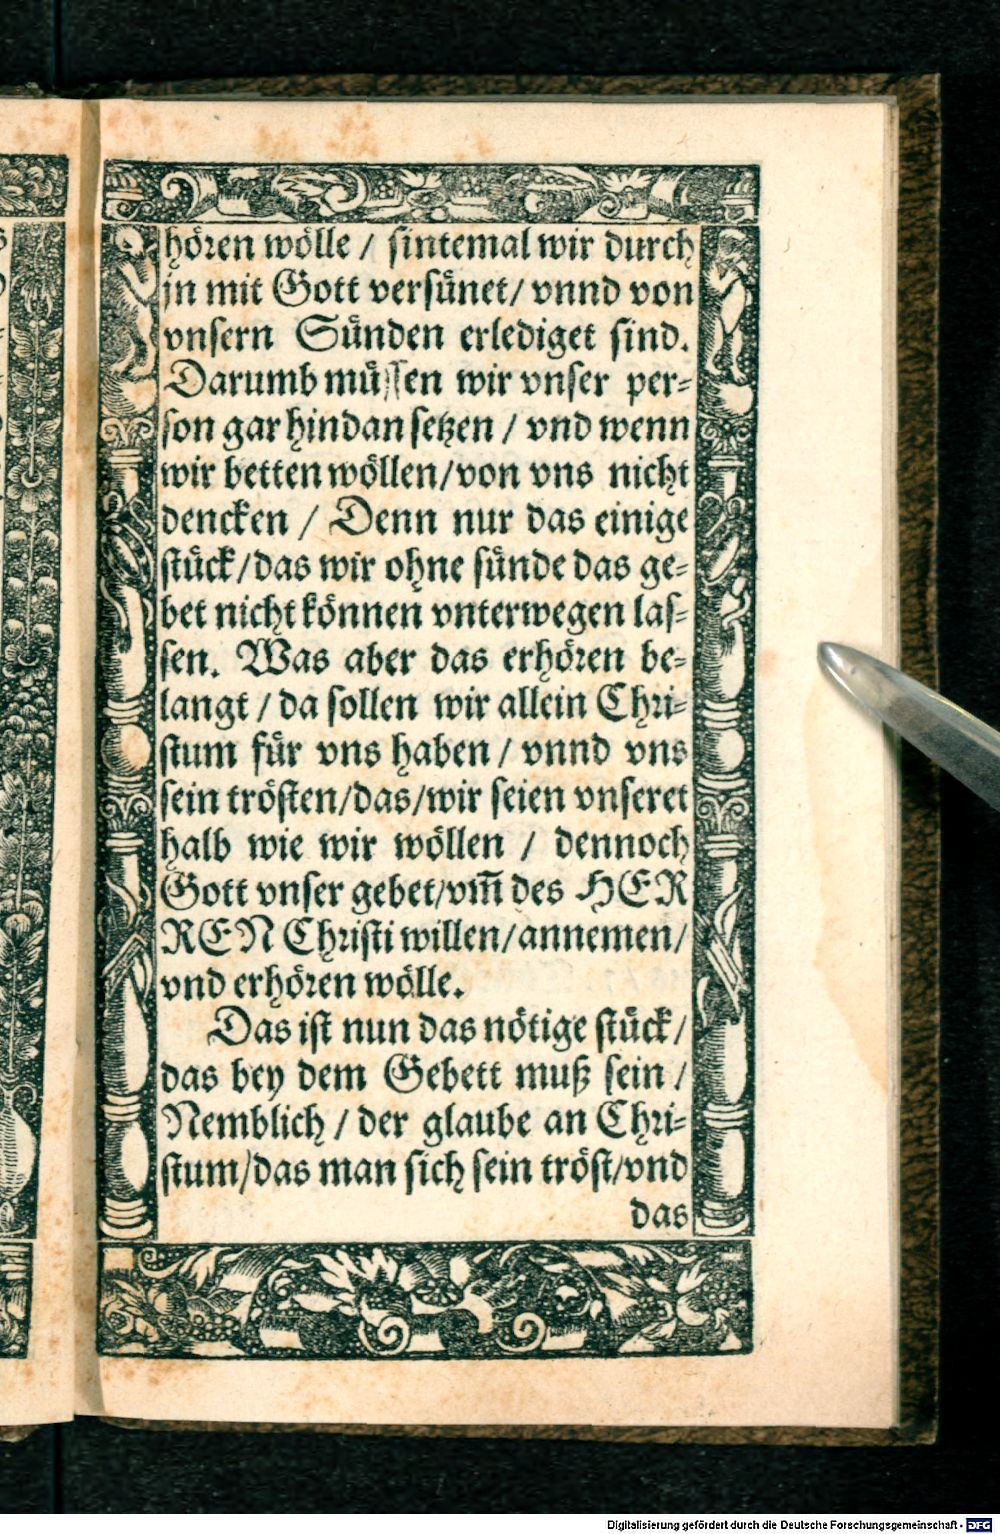 hören wölle / sintemal wir durch
jn mit Gott versünet / vnnd von
vnsern Sünden erlediget sind.
Darumb müssen wir vnser per-
son gar hindan setzen / vnd wenn
wir betten wöllen / von vns nicht
dencken / Denn nur das einige
stück / das wir ohne sünde das ge-
bet nicht können vnterwegen las-
sen. Was aber das erhören be-
langt / da sollen wir allein Chri-
stum für vns haben / vnnd vns
sein trösten / das / wir seien vnseret
halb wie wir wöllen / dennoch
Gott vnser gebet / vm̄ des HER
REN Christi willen / annemen /
vnd erhören wölle.
Das ist nun das nötige stück /
das bey dem Gebett muß sein /
Nemblich / der glaube an Chri-
stum / das man sich sein tröst / vnd
das
Digitalisierung gefördert durch die Deutsche Forschungsgemeinschaft - DFG